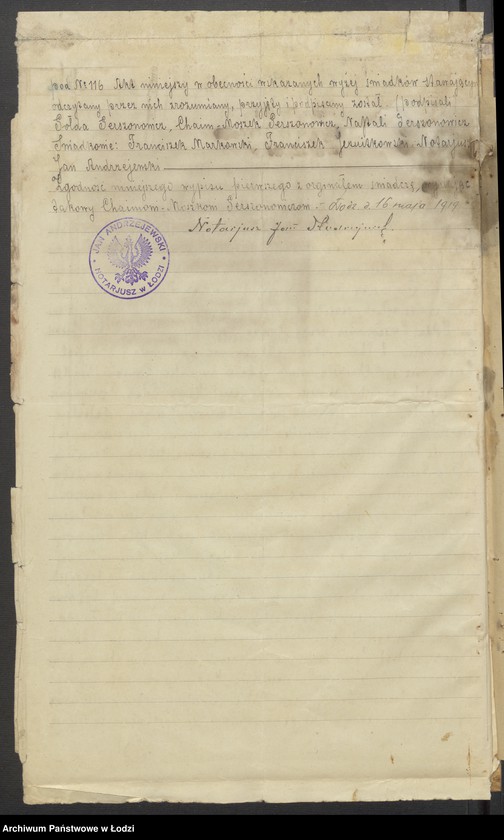 pod Nr 116 Akt niniejszy w obecności wskazanych wyżej świadków stawającym
odczytany przez nich zrozumiany, przyjęty i podpisany został (podpisali
Gołda Gerszonowicz, Chaim-Moszek Gerszonowicz, Naftali Gerszonowicz
Świadkowie: Franciszek Markowski, Franciszek Notarjusz
Jan Andrzejewski
Zgodność niniejszego wypisu pierwszego z oryginałem świadczę,
Chaimowi-Moszkowi Gerszonowiczowi - Łódź d 16 maja 1919
Notarjusz Jan Andrzejewski.
JAN ANDRZEJEWSKI
NOTARJUSZ w ŁODZI
Archiwum Państwowe w Łodzi